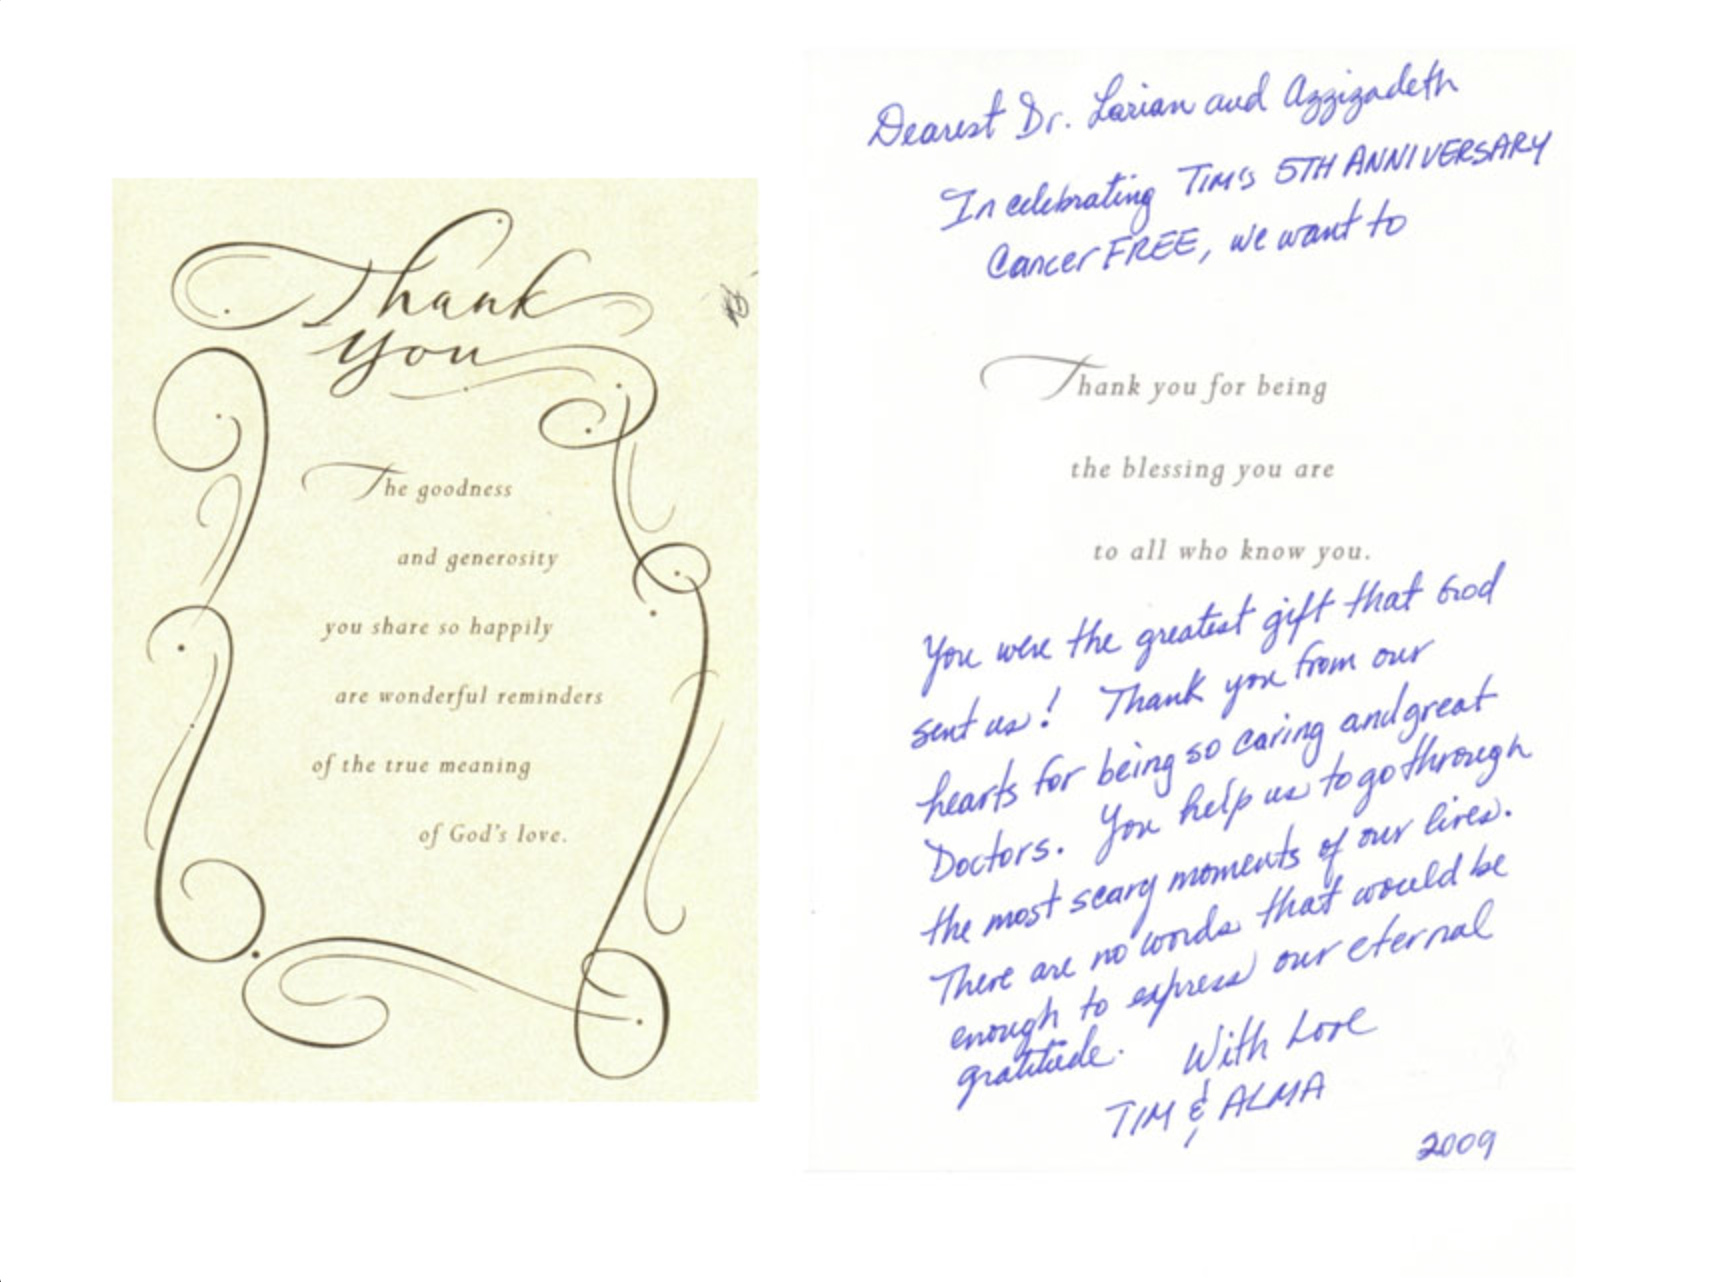 Thank
you
The goodness
and generosity
you share so happily
are wonderful reminders
of the true meaning
of God's love.
Dearest Dr. Larian and Azzizadeth
In celebrating TIM's 5TH ANNIVERSARY
Cancer FREE, we want to
Thank you for being
the blessing you are
to all who know you.
You were the greatest gift that God
sent us! Thank you from our
hearts for being so caring and great
Doctors. You help us to go through
the most scary moments of our lives.
There are no words that would be
enough to express our eternal
gratitude.
With Love
TIM & ALMA
2009